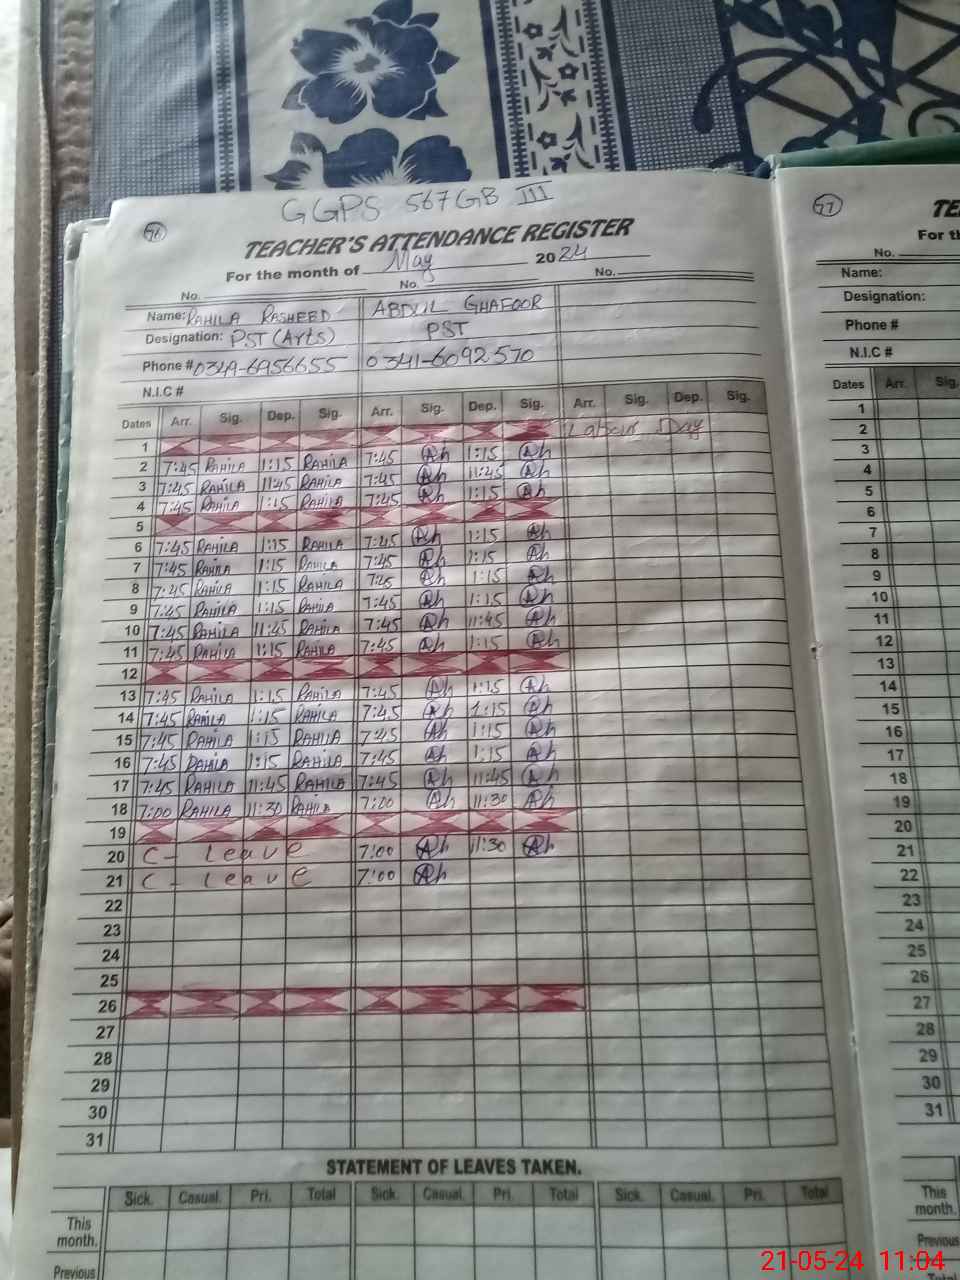 GGPS 567GB III
76
TEACHER'S ATTENDANCE REGISTER
For the month of May 2024
No. No. No.
Name: RAHILA RASHEED ABDUL GHAFOOR
Designation: PST (Arts) PST
Phone # 0349-6956655 0341-6092570
N.I.C #
Dates Arr. Sig. Dep. Sig. Arr. Sig. Dep. Sig. Arr. Sig. Dep. Sig.
1 Labour Day
2 7:45 RAHILA 1:15 RAHILA 7:45 Ah 1:15 Ah
3 7:45 RAHILA 11:45 RAHILA 7:45 Ah 11:45 Ah
4 7:45 RAHILA 1:15 RAHILA 7:45 Ah 1:15 Ah
5
6 7:45 RAHILA 1:15 RAHILA 7:45 Ah 1:15 Ah
7 7:45 RAHILA 1:15 RAHILA 7:45 Ah 1:15 Ah
8 7:45 RAHILA 1:15 RAHILA 7:45 Ah 1:15 Ah
9 7:45 RAHILA 1:15 RAHILA 7:45 Ah 1:15 Ah
10 7:45 RAHILA 11:45 RAHILA 7:45 Ah 11:45 Ah
11 7:45 RAHILA 1:15 RAHILA 7:45 Ah 1:15 Ah
12
13 7:45 RAHILA 1:15 RAHILA 7:45 Ah 1:15 Ah
14 7:45 RAHILA 1:15 RAHILA 7:45 Ah 1:15 Ah
15 7:45 RAHILA 1:15 RAHILA 7:45 Ah 1:15 Ah
16 7:45 RAHILA 1:15 RAHILA 7:45 Ah 1:15 Ah
17 7:45 RAHILA 11:45 RAHILA 7:45 Ah 11:45 Ah
18 7:00 RAHILA 11:30 RAHILA 7:00 Ah 11:30 Ah
19
20 C - Leave 7:00 Ah 11:30 Ah
21 C - Leave 7:00 Ah
22
23
24
25
26
27
28
29
30
31
STATEMENT OF LEAVES TAKEN.
Sick. Casual. Pri. Total Sick. Casual. Pri. Total Sick. Casual. Pri. Total
This month.
Previous
77
TE
For th
No.
Name:
Designation:
Phone #
N.I.C #
Dates Arr. Sig.
1
2
3
4
5
6
7
8
9
10
11
12
13
14
15
16
17
18
19
20
21
22
23
24
25
26
27
28
29
30
31
Sick.
This month.
Previous
Total
21-05-24 11:04